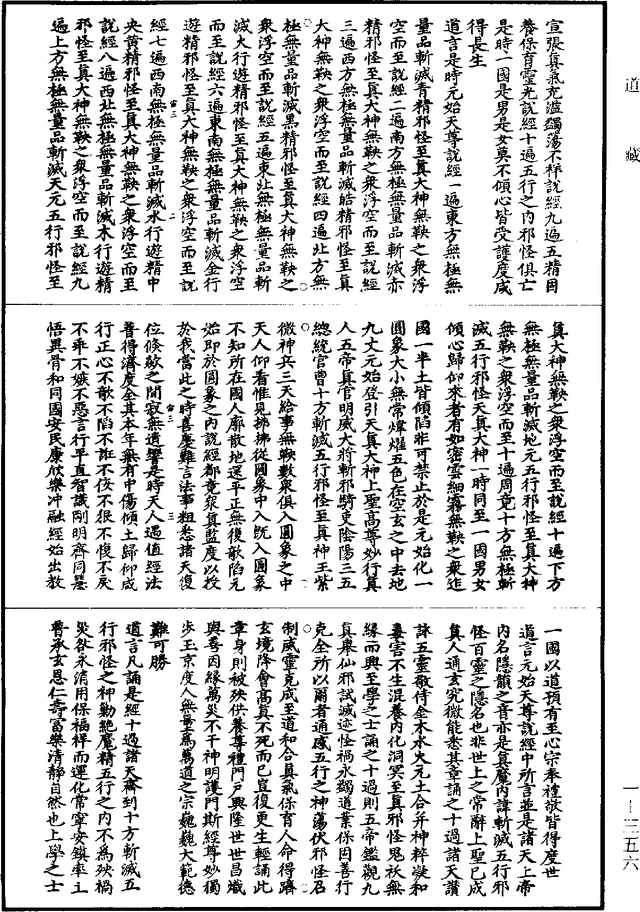 道藏
宣張真氣充溢蠲蕩不祥說經九遍五精固
養保育靈光說經十遍五行之內邪怪俱亡
是時一國是男是女莫不傾心皆受護度咸
得長生
道言是時元始天尊說經一遍東方無極無
量品斬滅青精邪怪至真大神無鞅之衆浮
空而至說經二遍南方無極無量品斬滅赤
精邪怪至真大神無鞅之衆浮空而至說經
三遍西方無極無量品斬滅皓精邪怪至真
大神無鞅之衆浮空而至說經四遍北方無
極無量品斬滅黑精邪怪至真大神無鞅之
衆浮空而至說經五遍東北無極無量品斬
滅火行遊精邪怪至真大神無鞅之衆浮空
而至說經六遍東南無極無量品斬滅金行
遊精邪怪至真大神無鞅之衆浮空而至說
經七遍西南無極無量品斬滅水行遊精中
央黄精邪怪至真大神無鞅之衆浮空而至
說經八遍西北無極無量品斬滅木行遊精
邪怪至真大神無鞅之衆浮空而至說經九
遍上方無極無量品斬滅天元五行邪怪至
真大神無鞅之衆浮空而至說經十遍下方
無極無量品斬滅地元五行邪怪至真大神
無鞅之衆浮空而至十遍周竟十方無極斬
滅五行邪怪天真大神一時同至一國男女
傾心歸仰來者有如密雲細霧無鞅之衆迮
國一半土皆傾陷非可禁止於是元始化一
圓象大小無常煒燿五色在空玄之中去地
九丈元始登引天真大神上聖高尊妙行真
人五帝真官明威大將斬邪騎吏陰陽三五
總統官曹十方斬滅五行邪怪至真神王紫
微神兵三天給事無鞅數衆俱入圓象之中
天人仰看惟見拂拂從圓象中入旣入圓象
不知所在國人廓散地還平正無復欹陷元
始即於圓象之內說經都竟衆真監度以授
於我當此之時喜慶難言法事粗悉諸天復
位倐欻之間寂無遺響是時天人遇值經法
普得濟度全其本年無有中傷傾土歸仰咸
行正心不散不陷不誑不佞不狠不愎不戾
不乖不嫉不惡言行平直智識剛明齊同慧
悟異骨和同國安民康欣樂沖融經始出教
一國以道預有至心宗奉禮敬皆得度世
道言元始天尊說經中所言並是諸天上帝
內名隱韻之音亦是真魔內諱斬滅五行邪
怪百靈之隱名也非世上之常辭上聖已成
真人通玄究微能悉其章誦之十過諸天讚
詠五靈敬侍金木水火元土合并神粹凝和
毒害不生混養内化洞冥至真邪怪鬼祅無
緣而興至學之士誦之十過則五帝鑑觀九
真舉仙邪試滅迹怪禍永蠲道業保固善行
克全所以爾者通感五行之神蕩伏邪怪召
制威靈克成至道和合真氣保育人命得躋
玄境降會高真不死而已豈復更生輕誦此
章身則被殃供養尊禮門戶興隆世世昌熾
與善因緣萬災不干神明護門斯經尊妙獨
步玉京度人無量爲萬道之宗巍巍大範德
難可勝
道言凡誦是經十過諸天齋到十方斬滅五
行邪怪之神勦絶魔精五行之內不爲殃禍
災欲永消用保福祥而運化常寧安鎮率土
普承玄恩仁壽富樂清靜自然也上學之士
一—三五六